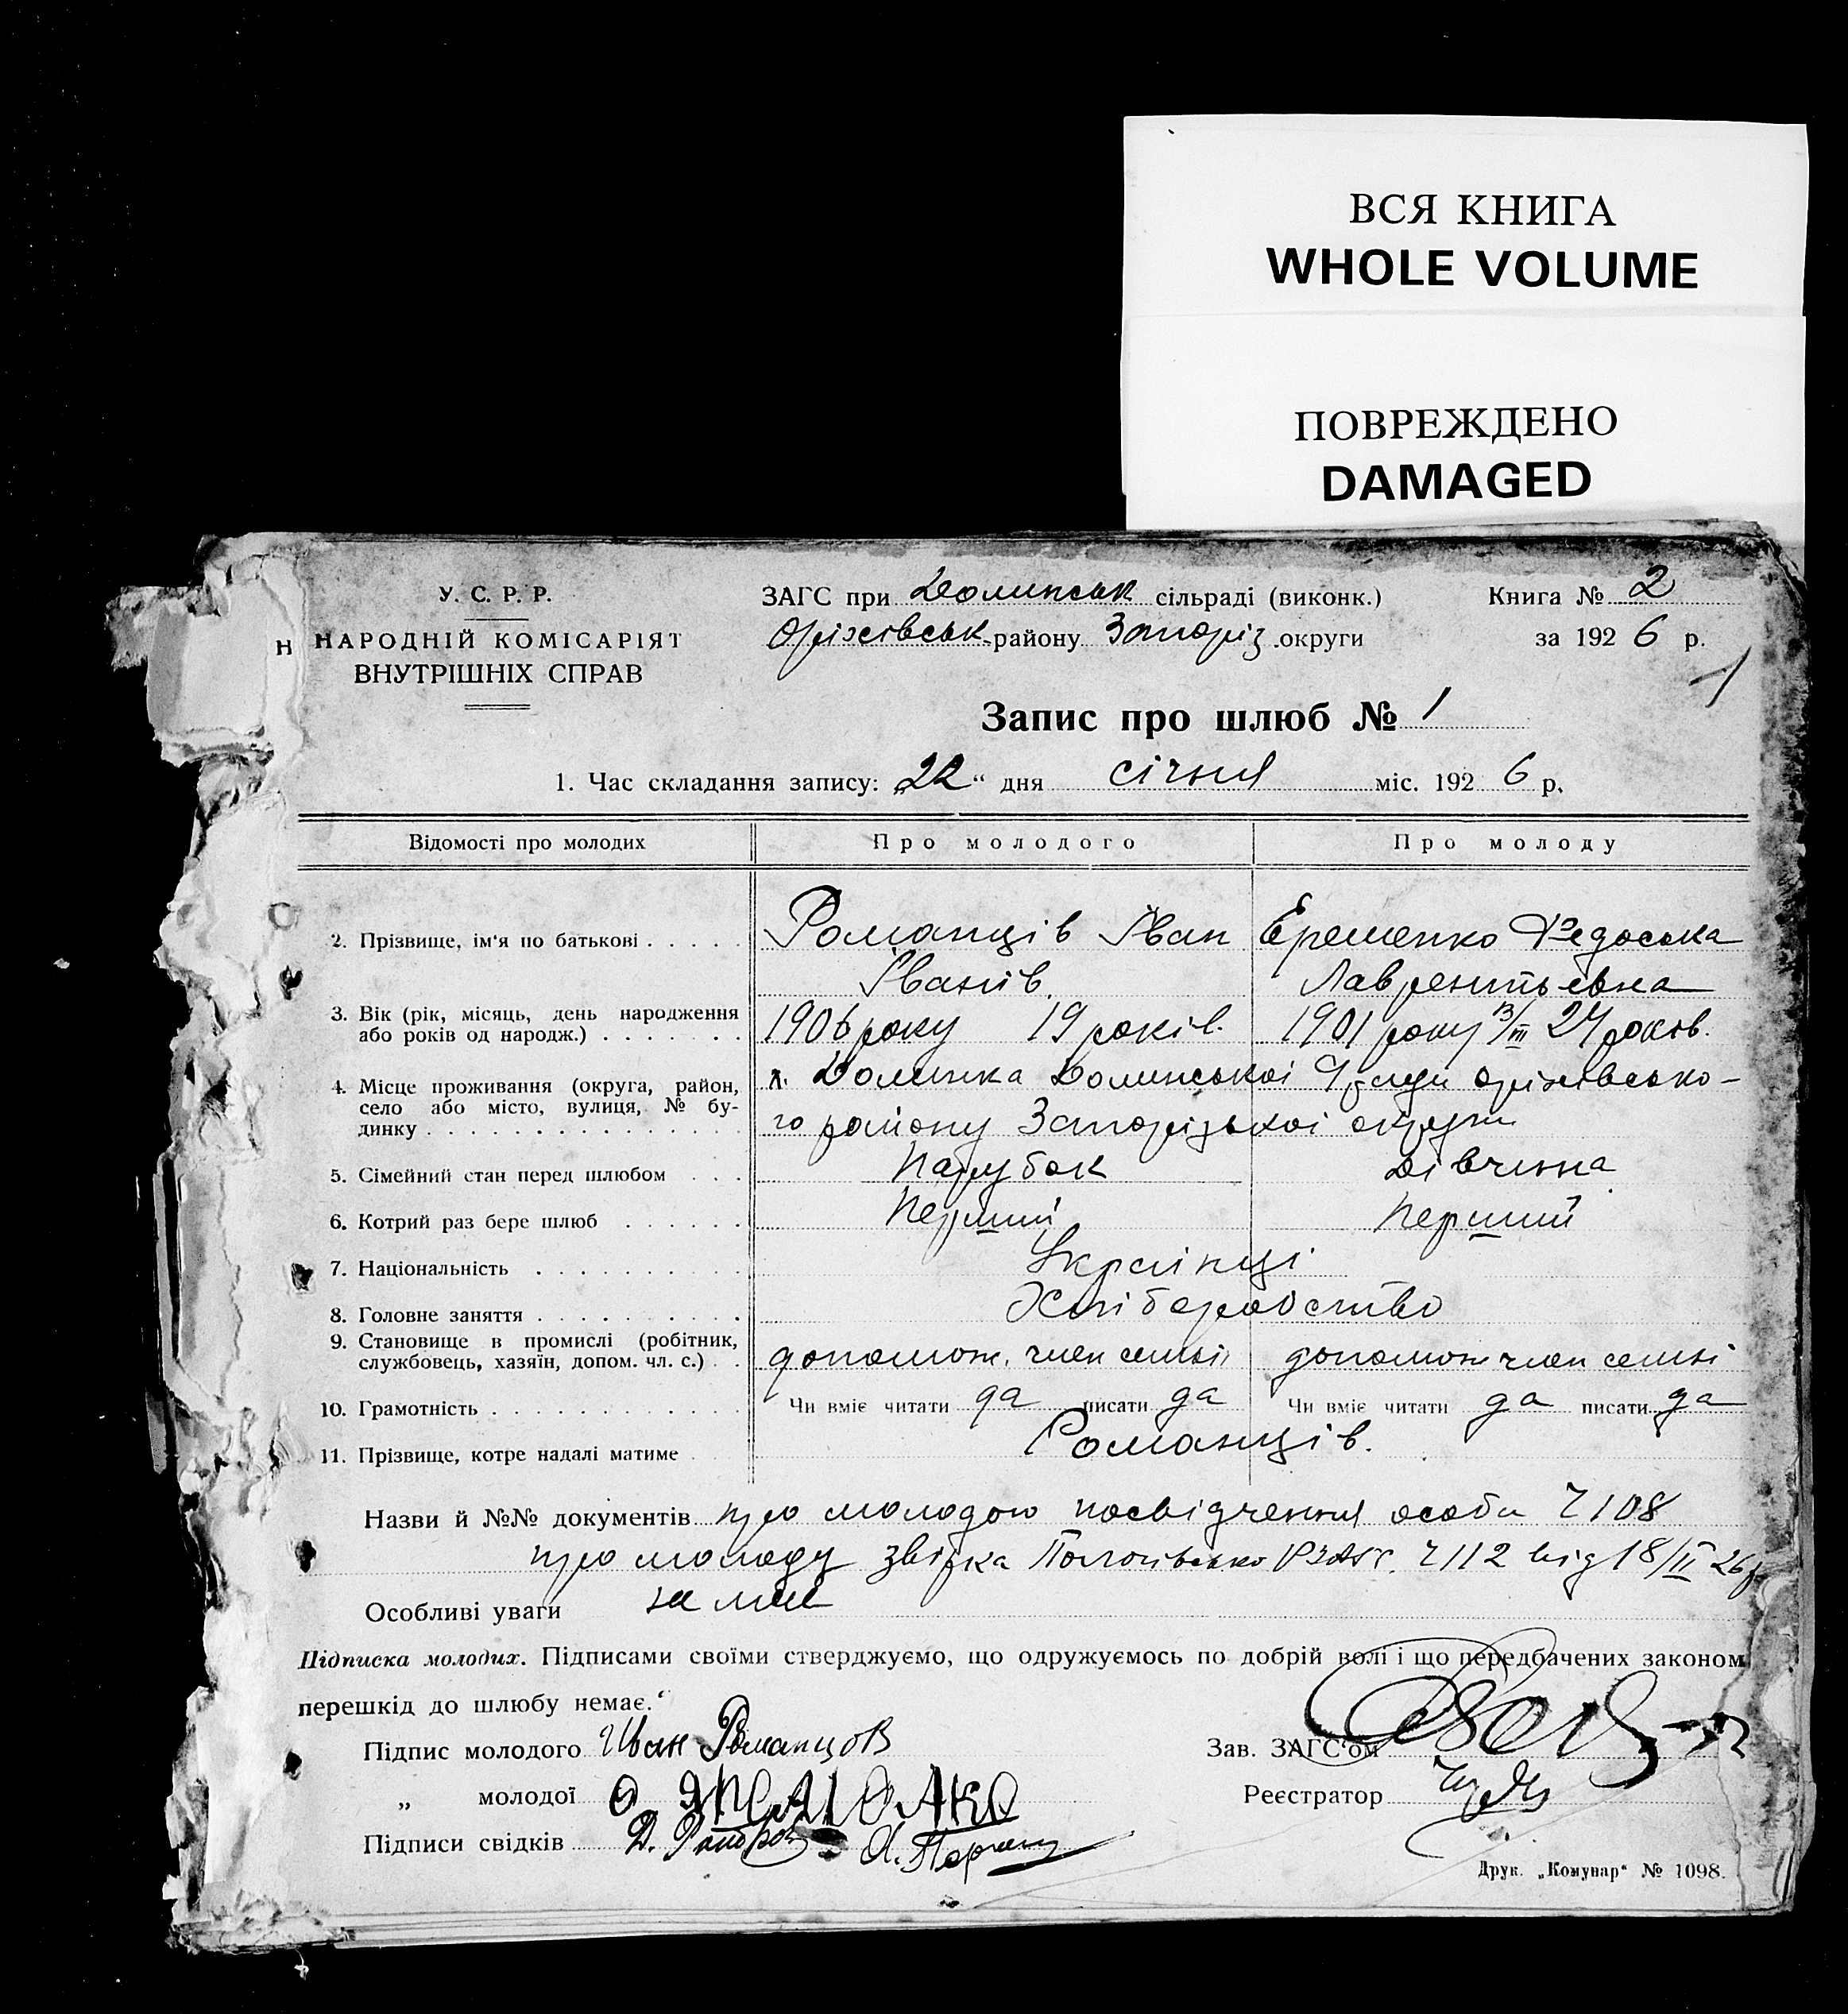 ВСЯ КНИГА
WHOLE VOLUME
ПОВРЕЖДЕНО
DAMAGED
У. С. Р. Р.
НАРОДНІЙ КОМІСАРІЯТ
ВНУТРІШНІХ СПРАВ
ЗАГС при Долинськ сільраді (виконк.)
Оріхівськ району Запоріз округи
Книга № 2
за 1926 р.
1
Запис про шлюб № 1
1. Час складання запису: „22“ дня січня міс. 1926 р.
Відомості про молодих Про молодого Про молоду
2. Прізвище, ім‘я по батькові Романців Іван Єременко Федоська
Іванів Лаврентьевна
3. Вік (рік, місяць, день народження 1906 року 19 років. 1901 року 13/III 24 років.
або років од народж.)
4. Місце проживання (округа, район, Долинка Долинськоі С/ради Оріхівсько-
село або місто, вулиця, № бу-
динку го району Запорізькоі округи
5. Сімейний стан перед шлюбом Парубок Дівчина
6. Котрий раз бере шлюб Перший Перший
7. Національність Украінці
8. Головне заняття Хліборобство
9. Становище в промислі (робітник,
службовець, хазяїн, допом. чл. с.) допомож. член семьі допомож член семьі
10. Грамотність Чи вміє читати да писати да Чи вміє читати да писати да
11. Прізвище, котре надалі матиме Романців.
Назви й №№ документів про молодого посвідчення особи Ч 108
про молоду звірка Ч 112 від 18/II 26 р
Особливі уваги немае
Підписка молодих. Підписами своїми стверджуємо, що одружуємось по добрій волі і що передбачених законом
перешкід до шлюбу немає.
Підпис молодого Иван Романцов
Зав. ЗАГС‘ом
„ молодої
Реєстратор
Підписи свідків
Друк. „Комунар“ № 1098.